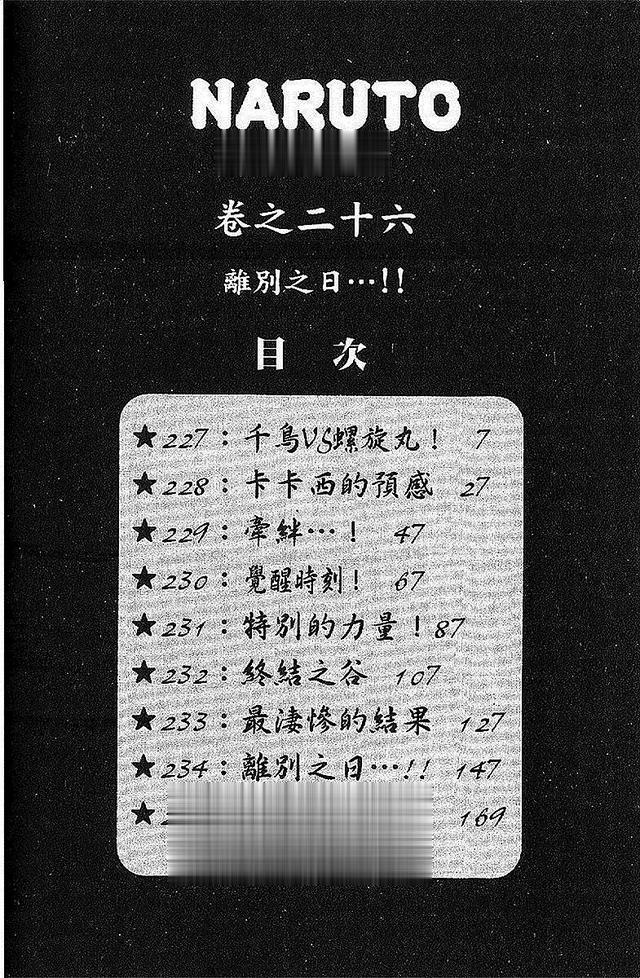 NARUTO
卷之二十六
離別之日…!!
目 次
★227：千鳥VS螺旋丸！ 7
★228：卡卡西的預感 27
★229：牽絆…！ 47
★230：覺醒時刻！ 67
★231：特別的力量！87
★232：終結之谷 107
★233：最淒慘的結果 127
★234：離別之日…!! 147
★ 169